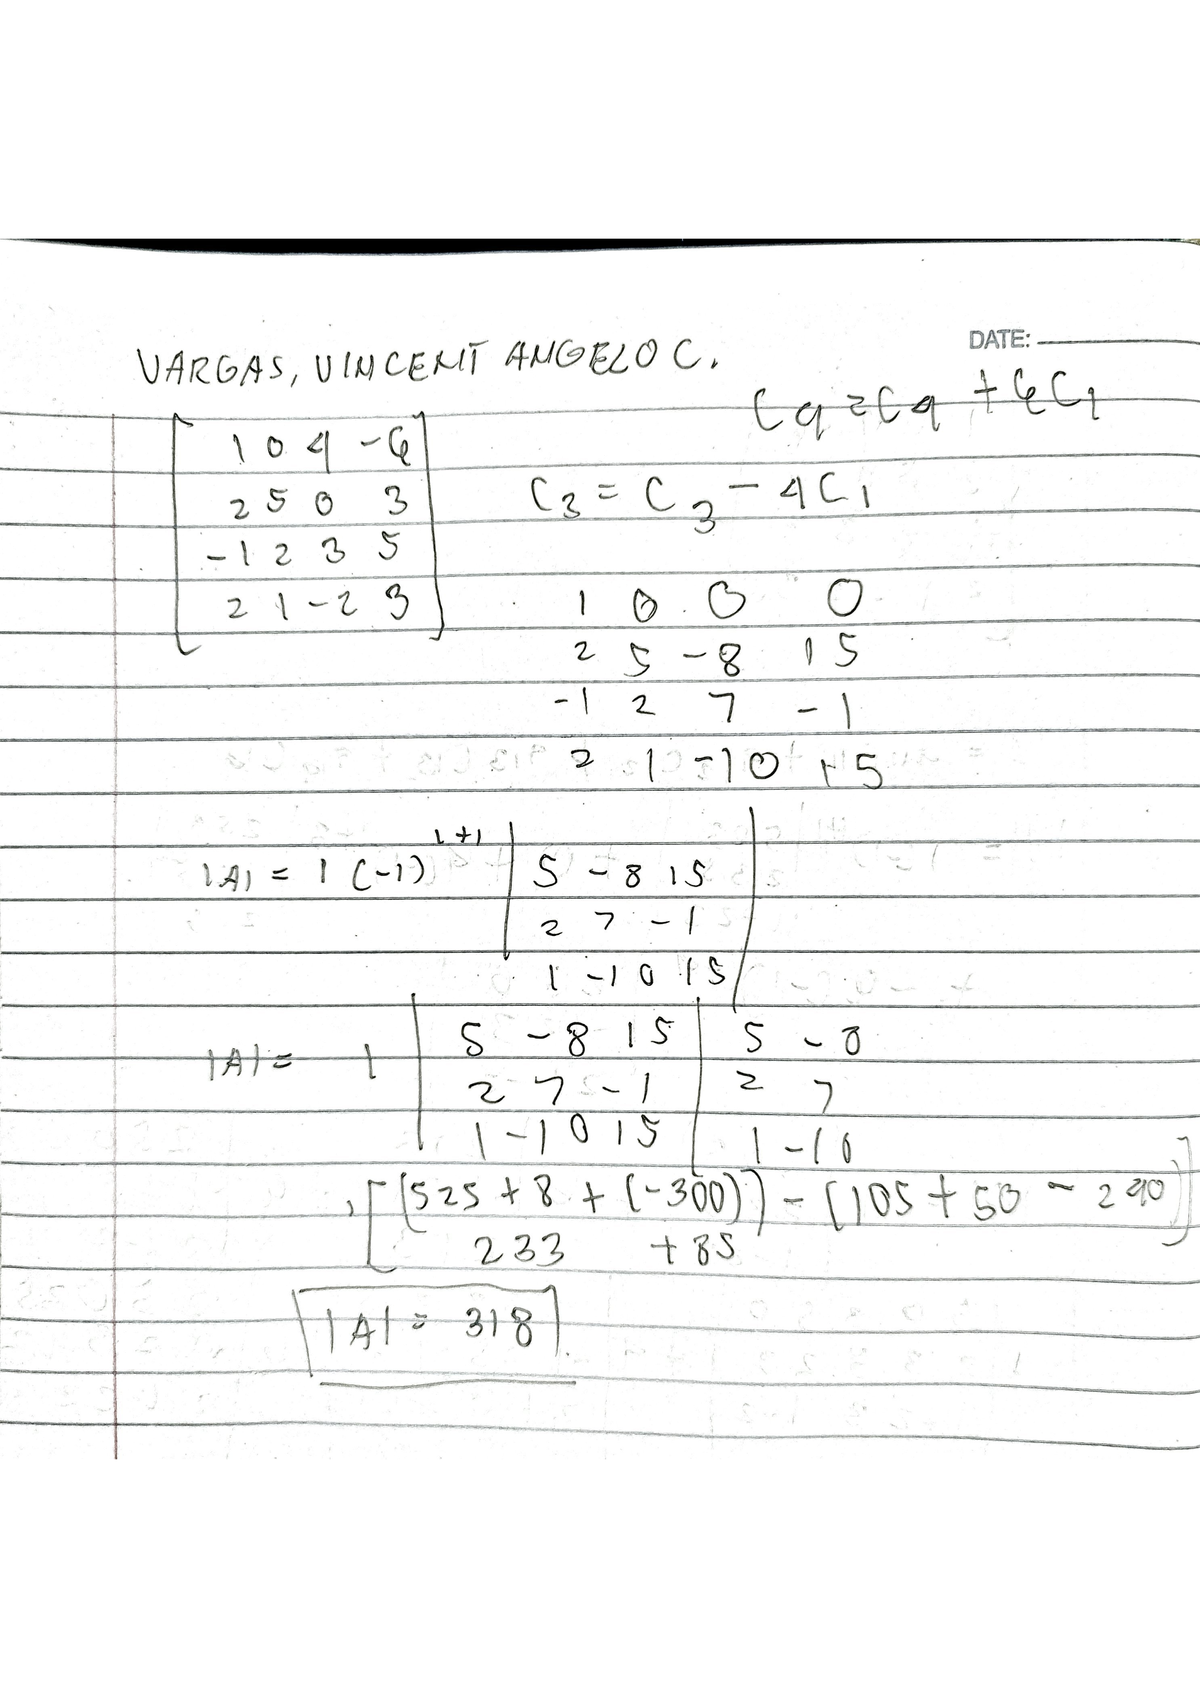 DATE:
VARGAS, VINCENT ANGELO C.
C4 = C4 + 6C1
1 0 4 -6
2 5 0 3
-1 2 3 5
2 1 -2 3
C3 = C3 - 4C1
1 0 0 0
2 5 -8 15
-1 2 7 -1
2 1 -10 15
|A| = 1 (-1)^1+1 | 5 -8 15 |
2 7 -1
1 -10 15
|A| = 1 | 5 -8 15 | 5 -8
2 7 -1 | 2 7
1 -10 15 | 1 -10
[(525 + 8 + (-300)) - (105 + 50 - 240)]
233 + 85
|A| = 318